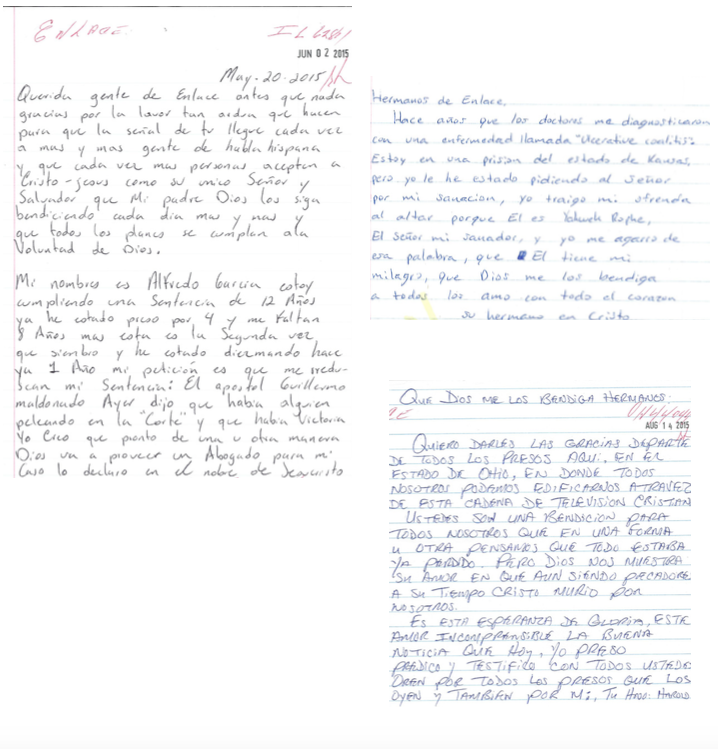 ENLACE. IL 62861
JUN 02 2015
May-20-2015
Querida gente de Enlace antes que nada
gracias por la lavor tan ardua que hacen
para que la señal de tv llegue cada vez
a mas y mas gente de habla hispana
y que cada vez mas personas acepten a
Cristo-Jesus como su unico Señor y
Salvador que Mi padre Dios los siga
bendiciendo cada dia mas y mas y
que todos los planes se cumplan ala
Voluntad de Dios.
Mi nombres es Alfredo Garcia estoy
cumpliendo una Sentencia de 12 Años
ya he estado preso por 4 y me faltan
8 Años mas esta es la Segunda vez
que siembro y he estado diezmando hace
ya 1 Año mi petición es que me redu-
scan mi Sentencia: El apostol Guillermo
maldonado Ayer dijo que habia alguien
peleando en la "Corte" y que habia Victoria
Yo Creo que pronto de una u otra manera
Dios va a proveer un Abogado para mi
Caso lo declaro en el nobre de Jesucristo
Hermanos de Enlace,
Hace años que los doctores me diagnosticaron
con una enfermedad llamada "Ulcerative coalitis".
Estoy en una prision del estado de Kansas,
pero yo le he estado pidiendo al Señor
por mi sanacion, yo traigo mi ofrenda
al altar porque El es Yahweh Rophe,
El Señor mi sanador, y yo me agarro de
esa palabra, que El tiene mi
milagro, que Dios me los bendiga
a todos los amo con todo el corazon
su hermano en Cristo
QUE DIOS ME LOS BENDIGA HERMANOS:
AUG 14 2015
QUIERO DARLES LAS GRACIAS DEPARTE
DE TODOS LOS PRESOS AQUI. EN EL
ESTADO DE OHIO, EN DONDE TODOS
NOSOTROS PODEMOS EDIFICARNOS ATRAVEZ
DE ESTA CADENA DE TELEVISION CRISTIAN
USTEDES SON UNA BENDICION PARA
TODOS NOSOTROS QUE EN UNA FORMA
u OTRA PENSAMOS QUE TODO ESTABA
YA PERDIDO. PERO DIOS NOS MUESTRA
SU AMOR EN QUE AUN SIENDO PECADORE
A SU TIEMPO CRISTO MURIO POR
NOSOTROS.
ES ESTA ESPERANZA DE GLORIA, ESTE
AMOR INCOMPRENSIBLE LA BUENA
NOTICIA QUE HOY, YO PRESO
PREDICO Y TESTIFICO CON TODOS USTEDE
OREN POR TODOS LOS PRESOS QUE LOS
OYEN Y TAMBIEN POR MI, TU HNO: HAROLD